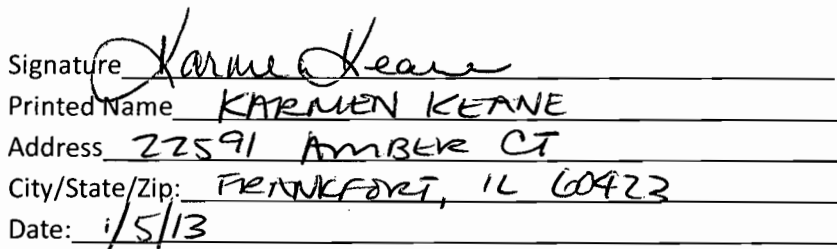 Signature Karmen Keane
Printed Name KARMEN KEANE
Address 22591 AMBER CT
City/State/Zip: FRANKFORT, IL 60423
Date: 1/5/13